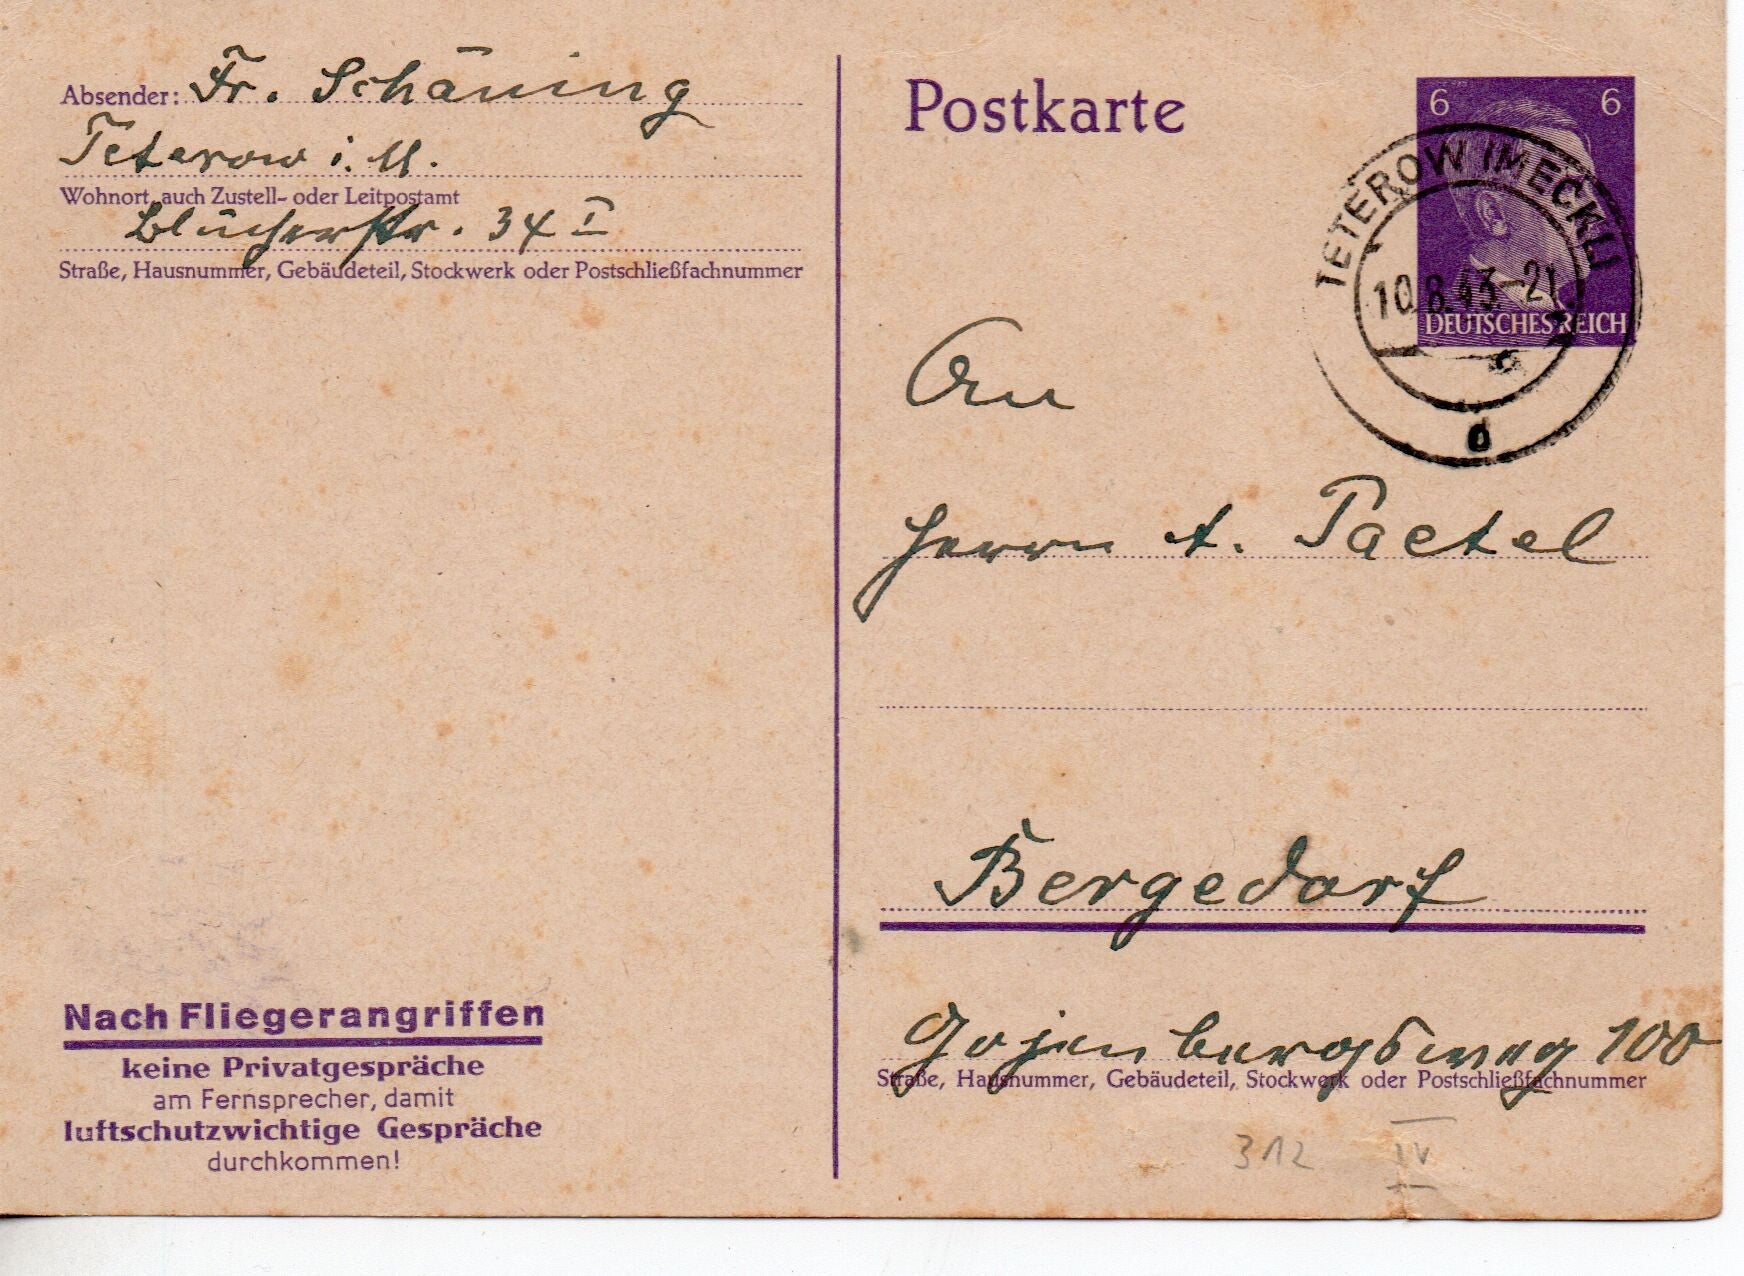 Absender: Fr. Schäning
Teterow i. M.
Wohnort, auch Zustell- oder Leitpostamt
Blücherstr. 34 I
Straße, Hausnummer, Gebäudeteil, Stockwerk oder Postschließfachnummer
Nach Fliegerangriffen
keine Privatgespräche
am Fernsprecher, damit
luftschutzwichtige Gespräche
durchkommen!
Postkarte
6 6
DEUTSCHES REICH
TETEROW (MECKL)
10.8.43.-21
d
An
Herrn A. Paetel
Bergedorf
Gojenbergsweg 100
Straße, Hausnummer, Gebäudeteil, Stockwerk oder Postschließfachnummer
312 IV